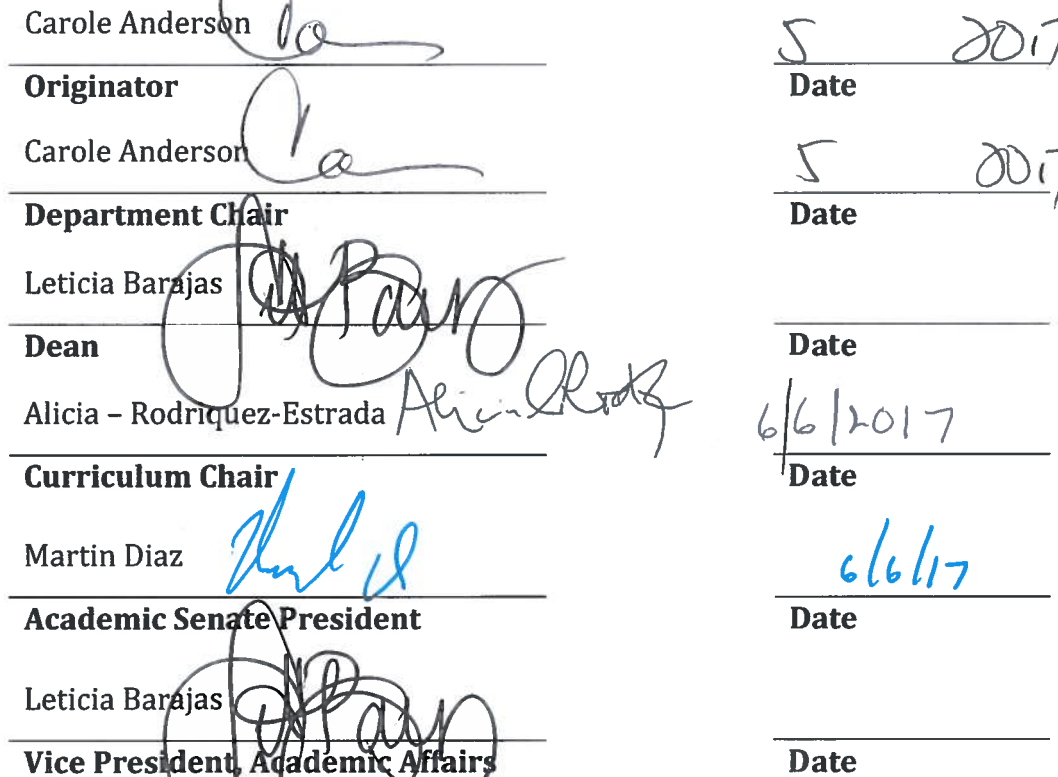 Carole Anderson 5 2017
Originator Date
Carole Anderson 5 201
Department Chair Date
Leticia Barajas
Dean Date
Alicia – Rodriquez-Estrada 6/6/2017
Curriculum Chair Date
Martin Diaz 6/6/17
Academic Senate President Date
Leticia Barajas
Vice President, Academic Affairs Date